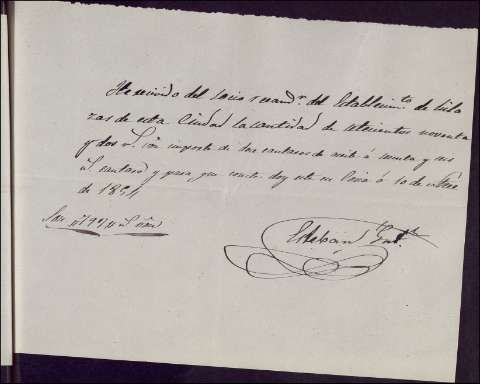 He recivido del socio recaud.r del Establecim.to de
zas de esta Ciudad la cantidad de setecientos noventa
y dos r.s von importe de doce cantaros de aceite á sesenta y seis
r.s cantaro y para que conste doy este en á 10 de
de 1854
Son 792 r.s von
Esteban